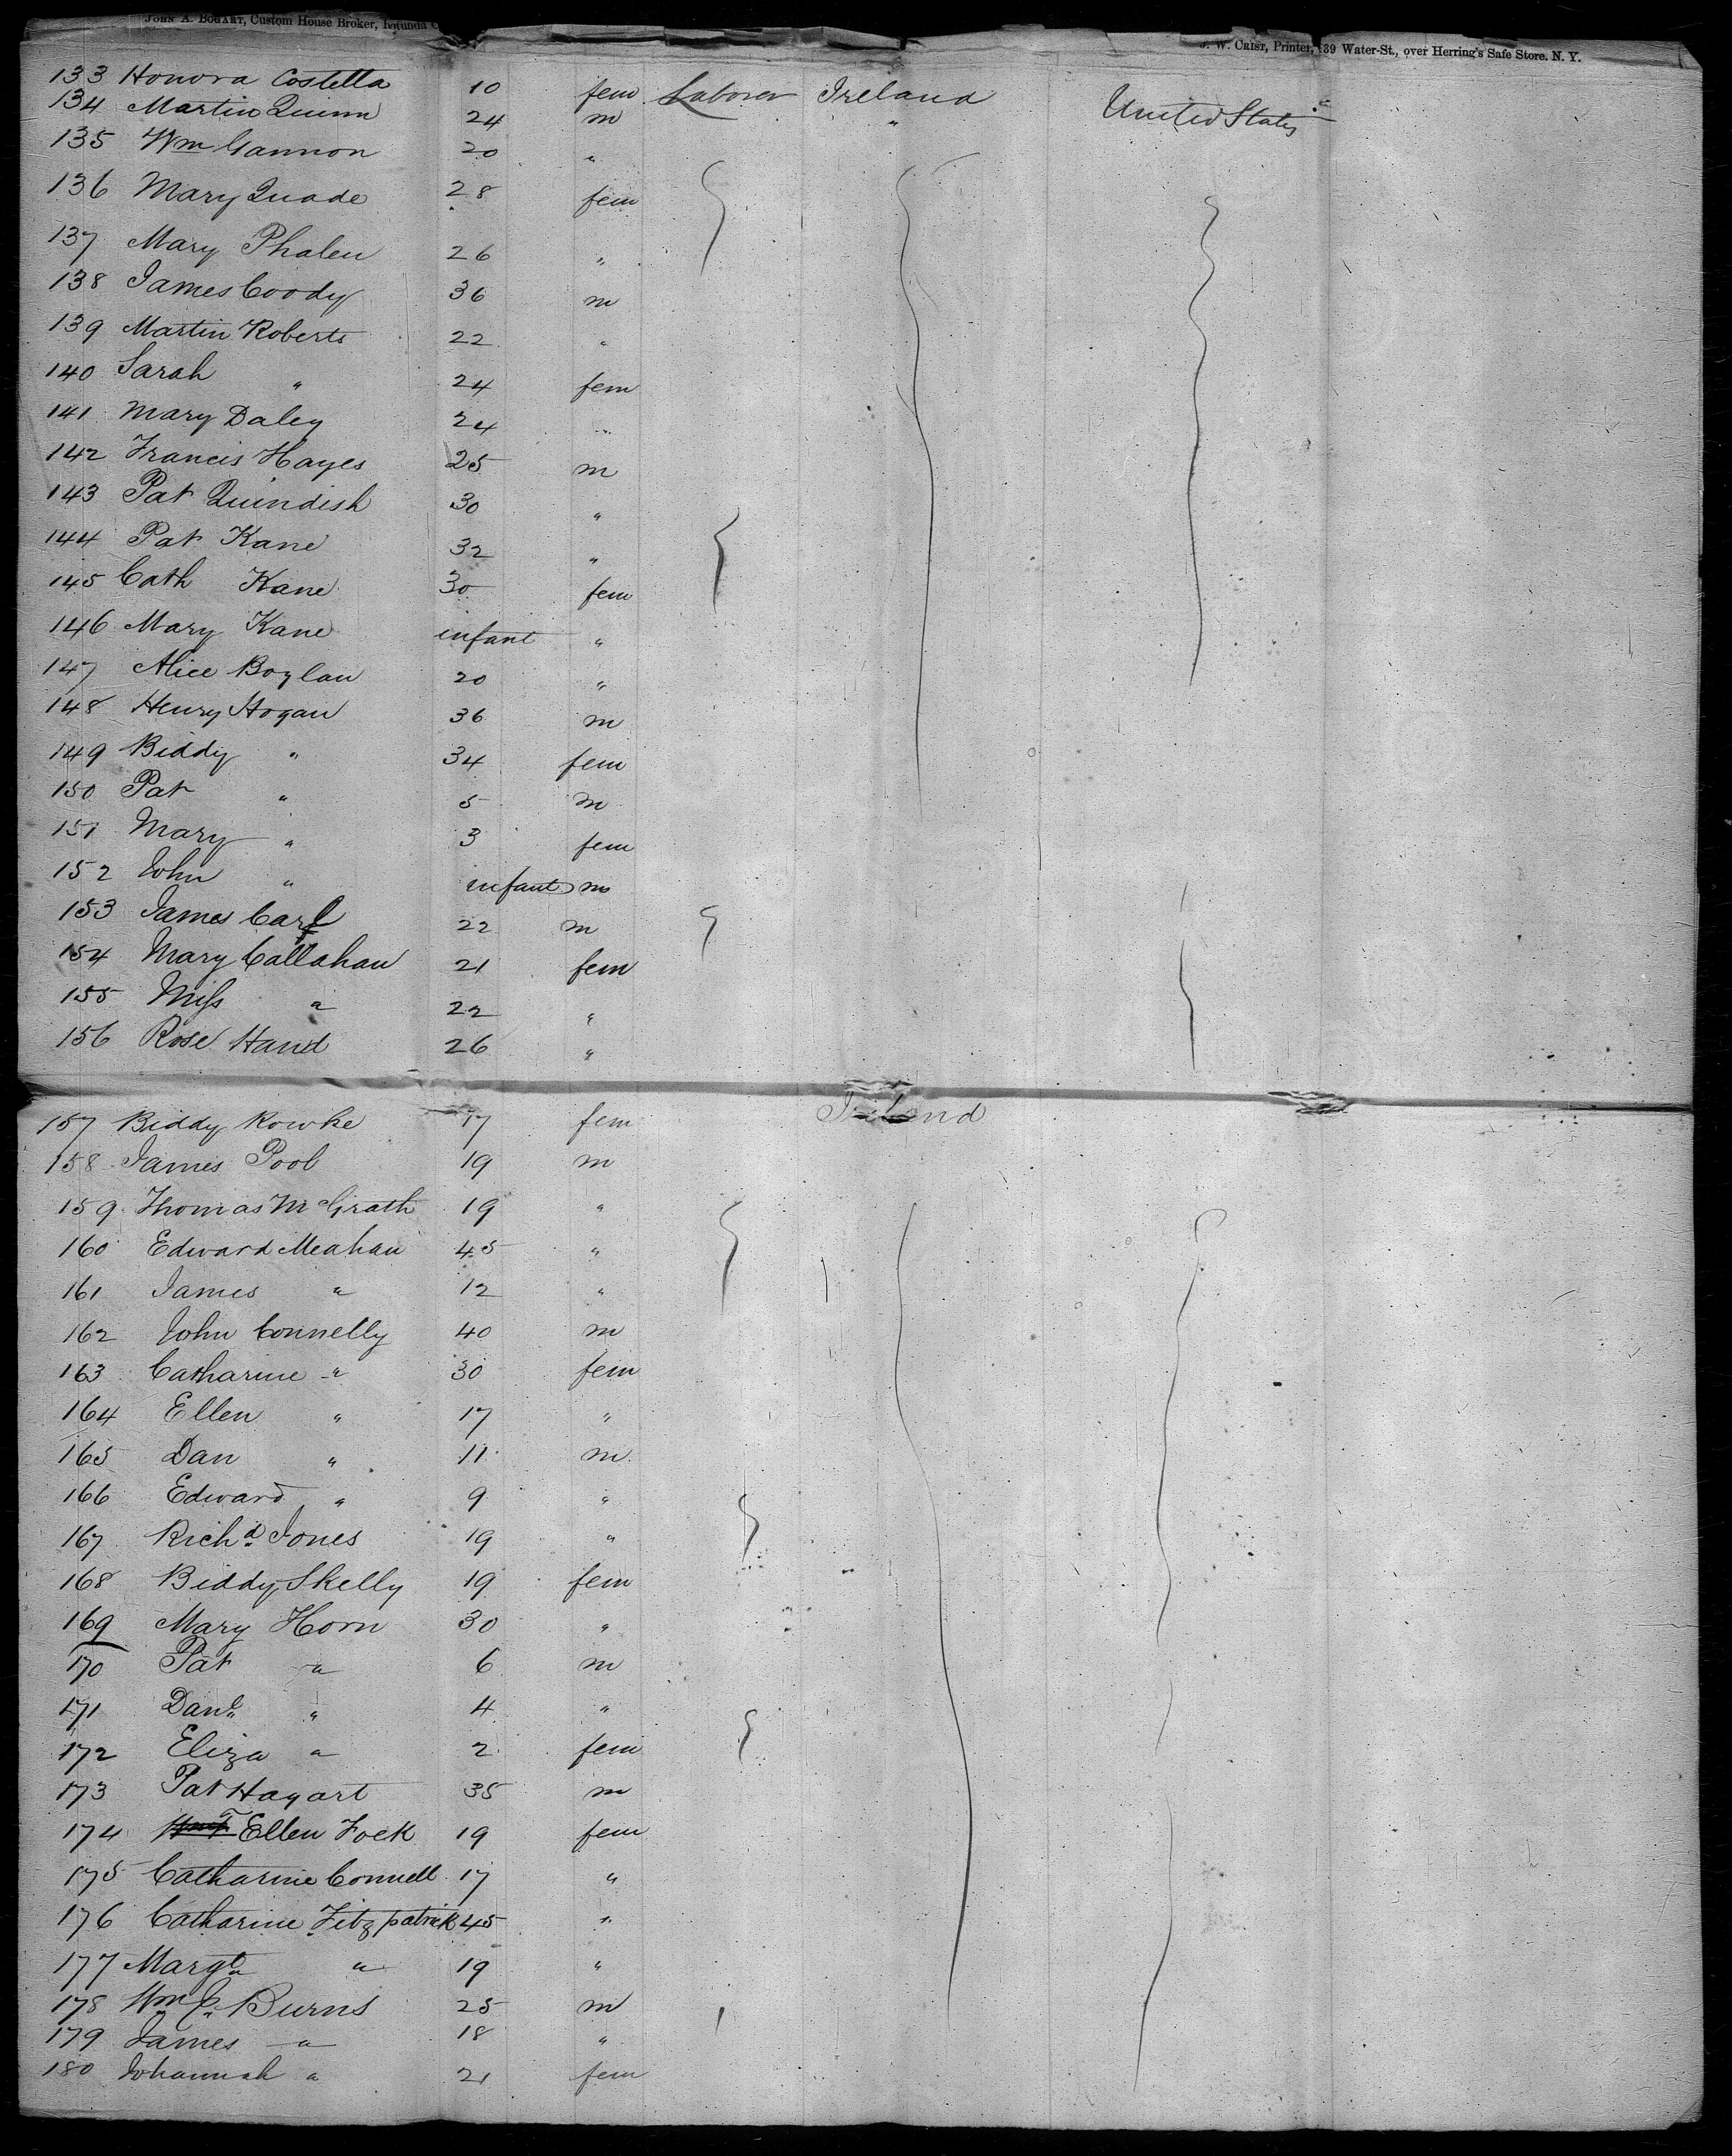 JOHN A. BOGART, Custom House Broker, Rotunda
J. W. CRIST, Printer, 139 Water-St., over Herring's Safe Store. N. Y.
133 Honora Costella 10 fem Laborer Ireland United States
134 Martin Quinn 24 m "
135 Wm Gannon 20 "
136 Mary Quade 28 fem
137 Mary Phalen 26 "
138 James Coody 36 m
139 Martin Roberts 22 "
140 Sarah " 24 fem
141 Mary Daley 24 "
142 Francis Hayes 25 m
143 Pat Quindish 30 "
144 Pat Kane 32 "
145 Cath Kane 30 fem
146 Mary Kane infant "
147 Alice Boylan 20 "
148 Henry Hogan 36 m
149 Biddy " 34 fem
150 Pat " 5 m
151 Mary " 3 fem
152 John " infant m
153 James Carl 22 m
154 Mary Callahan 21 fem
155 Miss " 22 "
156 Rose Hand 26 "
157 Biddy Rowke 17 fem Ireland
158 James Pool 19 m
159 Thomas McGrath 19 "
160 Edward Meahan 45 "
161 James " 12 "
162 John Connelly 40 m
163 Catharine " 30 fem
164 Ellen " 17 "
165 Dan " 11 m
166 Edward " 9 "
167 Richd Jones 19 "
168 Biddy Skelly 19 fem
169 Mary Horn 30 "
170 Pat " 6 m
171 Danl " 4 "
172 Eliza " 2 fem
173 Pat Hagart 35 m
174 Ellen Fock 19 fem
175 Catharine Connell 17 "
176 Catharine Fitzpatrick 45 "
177 Margt " " 19 "
178 Wm Burns 25 m
179 James " 18 "
180 Johannah " 21 fem